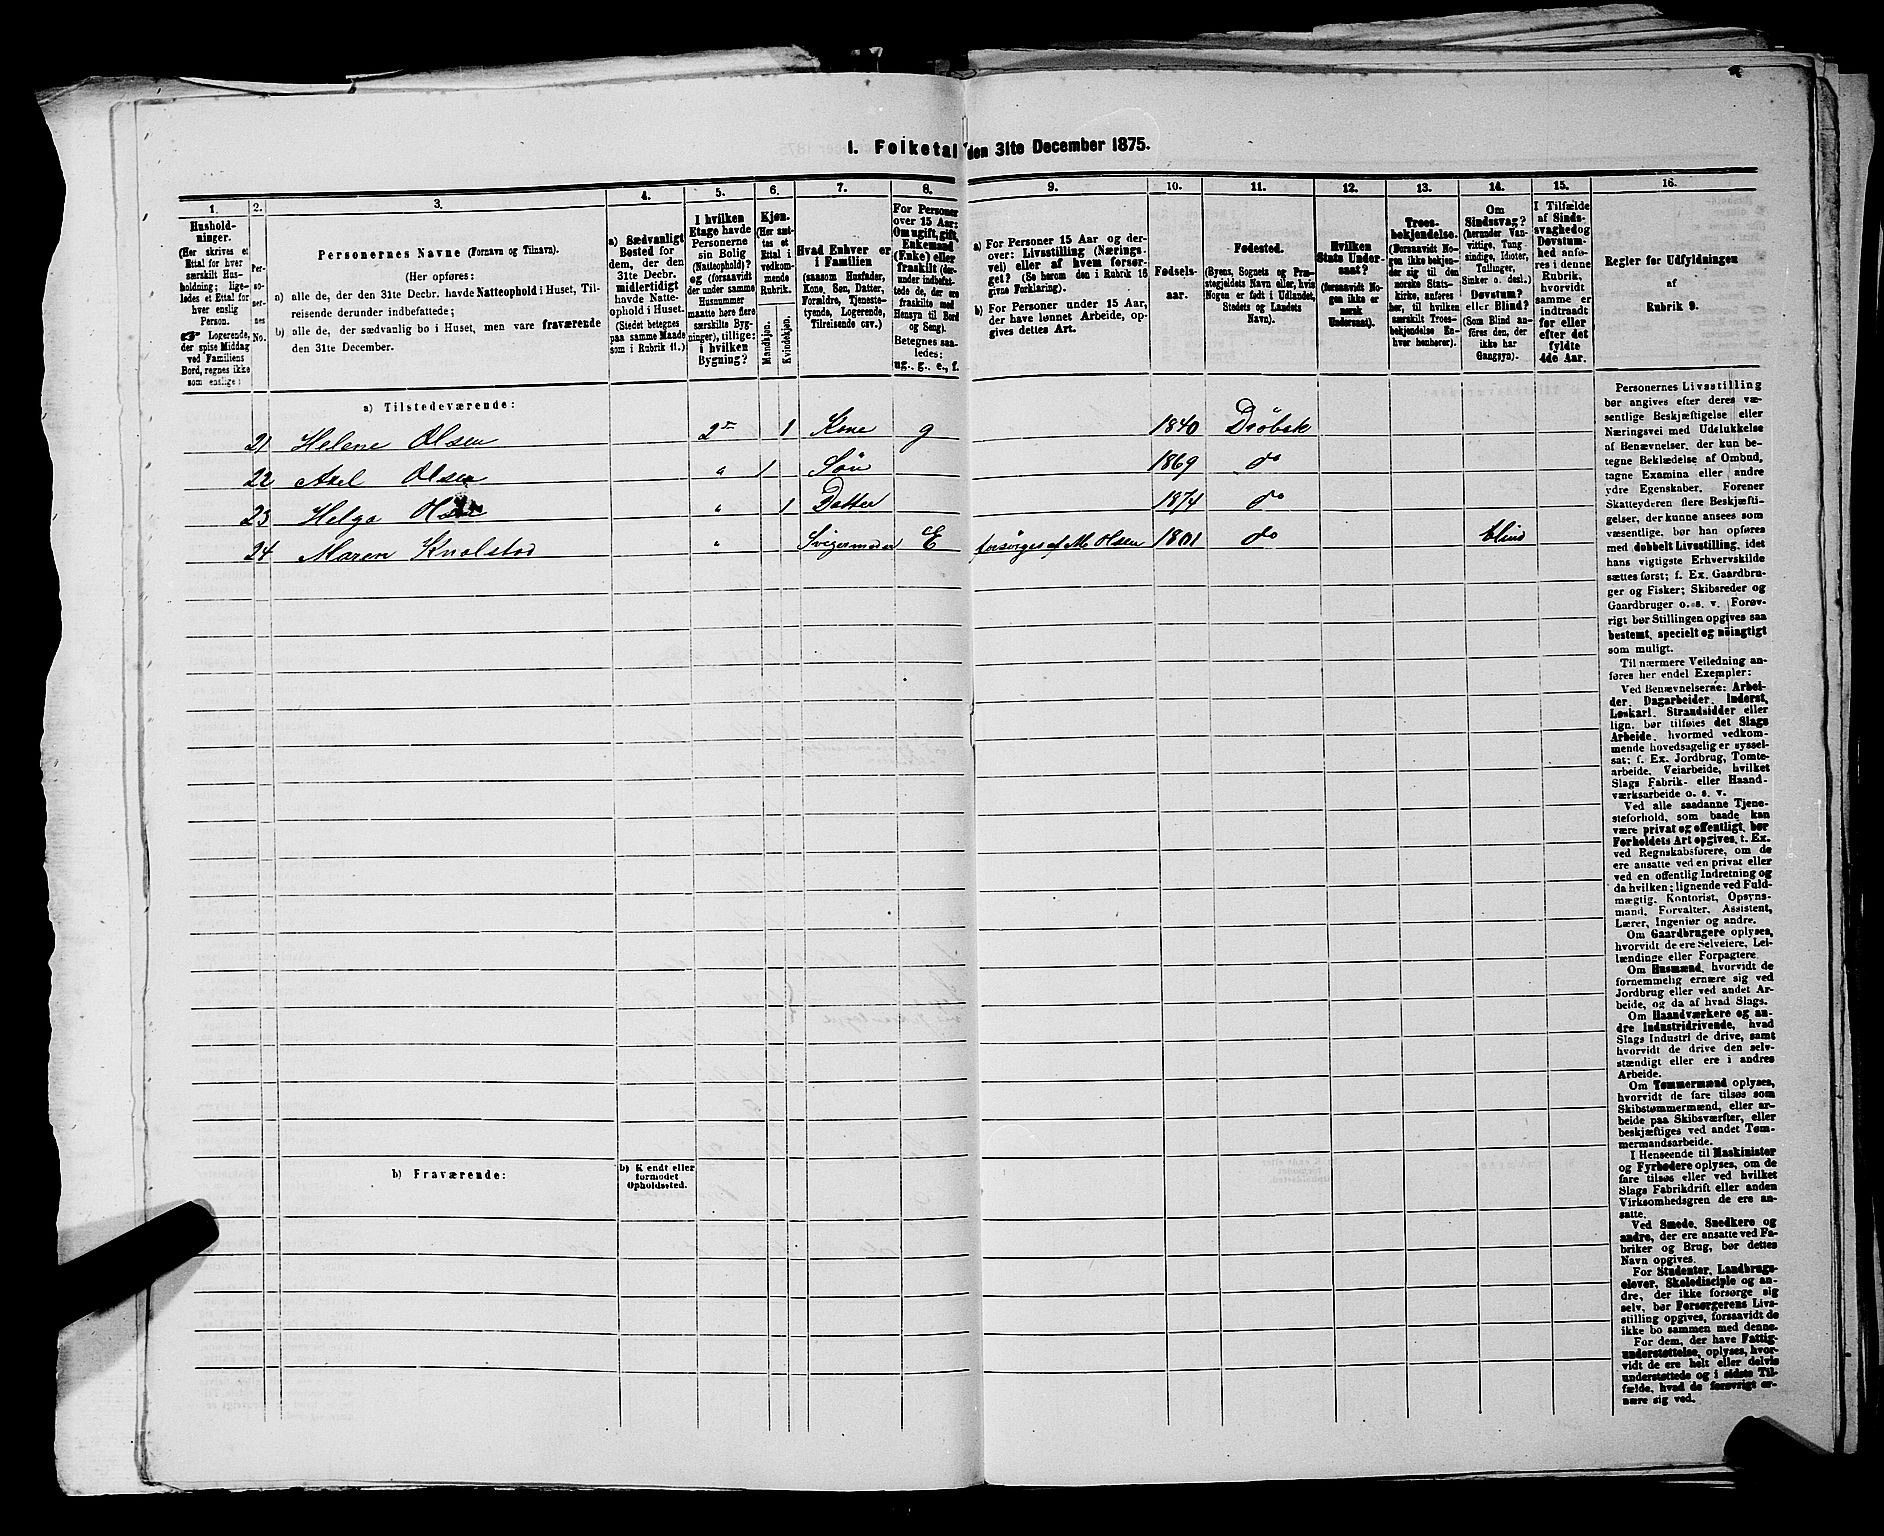 I. Folketal den 31te December 1875.
1. 2. 3. 4. 5. 6. 7. 8. 9. 10. 11. 12. 13. 14. 15. 16.
Hushold-
ninger.
(Her skrives et
Ettal for hver
særskilt Hus-
holdning; lige-
ledes et Ettal for
hver enslig
Person.
Logerende,
der spise Middag
ved Familiens
Bord, regnes ikke
som enslige)
Per-
so-
ner-
nes
No.
Personernes Navne (Fornavn og Tilnavn).
(Her opføres:
a) alle de, der den 31te Decbr. havde Natteophold i Huset, Til-
reisende derunder indbefattede;
b) alle de, der sædvanlig bo i Huset, men vare fraværende
den 31te December.
a) Sædvanligt
Bosted for
dem, der den
31te Decbr.
midlertidigt
havde Natte-
ophold i Huset.
(Stedet betegnes
paa samme Maade
som i Rubrik 11.)
I hvilken
Etage havde
Personerne
sin Bolig
(Natteophold)?
og (forsaavidt
der under samme
Husnummer
maatte høre flere
særskilte Byg-
ninger), tillige:
i hvilken
Bygning?
Kjøn.
(Her sæt-
tes et
Ettal i
vedkom-
mende
Rubrik.
Mandkjøn.
Kvindekjøn.
Hvad Enhver er
i Familien
(saasom Husfader,
Kone, Søn, Datter,
Forældre, Tjeneste-
tyende, Logerende,
Tilreisende osv.)
For Personer
over 15 Aar:
Om ugift, gift,
Enkemand
(Enke) eller
fraskilt (der-
under indbefat-
tede de, der ere
fraskilte med
Hensyn til Bord
og Seng).
Betegnes saa-
ledes:
ug., g., e., f.
a) For Personer 15 Aar og der-
over: Livsstilling (Nærings-
vei) eller af hvem forsør-
get? (Se herom den i Rubrik 16
givne Forklaring).
b) For Personer under 15 Aar,
der have lønnet Arbeide, op-
gives dettes Art.
Fødsels-
aar.
Fødested.
(Byens, Sognets og Præ-
stegjeldets Navn eller, hvis
Nogen er født i Udlandet,
Stedets og Landets
Navn).
Hvilken
Stats Under-
saat?
(forsaavidt No-
gen ikke er
norsk
Undersaat).
Troes-
bekjendelse.
(Forsaavidt No-
gen ikke bekjen-
der sig til den
norske Stats-
kirke, anføres
her, til hvilken
særskilt Troes-
bekjendelse En-
hver henhører).
Om
Sindssvag?
(herunder Van-
vittige, Tung-
sindige, Idioter,
Tullinger,
Sinker o. desl.)
Døvstum?
eller Blind?
(Som Blind an-
føres den, der
ikke har
Gangsyn).
I Tilfælde
af Sinds-
svaghed og
Døvstum-
hed anfø-
res i denne
Rubrik,
hvorvidt
samme er
indtraadt
før eller
efter det
fyldte
4de Aar.
Regler for Udfyldningen
af
Rubrik 9.
a) Tilstedeværende:
21 Helene Olsen 2 1 Kone g 1840 Drøbak
22 Axel Olsen " 1 Søn 1869 do
23 Helga Olsen " 1 Datter 1874 do
24 Maren Knolstad " Svigermoder E forsørges af M. Olsen 1801 do blind
b) Fraværende:
b) Kjendt eller
formodet
Opholdssted.
Personernes Livsstilling
bør angives efter deres væ-
sentlige Beskjæftigelse eller
Næringsvei med Udelukkelse
af Benævnelser, der kun be-
tegne Beklædelse af Ombud,
tagne Examina eller andre
ydre Egenskaber. Forener
Skatteyderen flere Beskjæfti-
gelser, der kunne ansees som
væsentlige, bør han opføres
med dobbelt Livsstilling, idet
hans vigtigste Erhvervskilde
sættes først; f. Ex. Gaardbru-
ger og Fisker; Skibsreder og
Gaardbruger o. s. v. Forøv-
rigt bør Stillingen opgives saa
bestemt, specielt og nøiagtigt
som muligt.
Til nærmere Veiledning an-
føres her endel Exempler:
Ved Benævnelserne: Arbei-
der, Dagarbeider, Inderst,
Løskarl, Strandsidder eller
lign. bør tilføies det Slags
Arbeide, hvormed vedkom-
mende hovedsagelig er syssel-
sat; f. Ex. Jordbrug, Tomte-
arbeide, Veiarbeide, hvilket
Slags Fabrik- eller Haand-
værksarbeide o. s. v.
Ved alle saadanne Tjene-
steforhold, som baade kan
være privat og offentligt, bør
Forholdets Art opgives, t. Ex.
ved Regnskabsførere, om de
ere ansatte ved en privat eller
ved en offentlig Indretning og
da hvilken; lignende ved Fuld-
mægtig, Kontorist, Opsyns-
mand, Forvalter, Assistent,
Lærer, Ingeniør og andre.
Om Gaardbrugere oplyses,
hvorvidt de ere Selveiere, Lei-
lændinge eller Forpagtere.
Om Husmænd, hvorvidt de
fornemmelig ernære sig ved
Jordbrug eller ved andet Ar-
beide, og da af hvad Slags.
Om Haandværkere og an-
dre Industridrivende, hvad
Slags Industri de drive, samt
hvorvidt de drive den selv-
stændigt eller ere i andres
Arbeide.
Om Tømmermænd oplyses,
hvorvidt de fare tilsøs som
Skibstømmermænd, eller ar-
beide paa Skibsværfter, eller
beskjæftiges ved andet Tøm-
mermandsarbeide.
I Henseende til Maskinister
og Fyrbødere oplyses, om de
fare tilsøs eller ved hvilket
Slags Fabrikdrift eller anden
Virksomhedsgren de ere an-
satte.
Ved Smede, Snedkere og
andre, der ere ansatte ved Fa-
briker og Brug, bør dettes
Navn opgives.
For Studenter, Landbrugs-
elever, Skoledisciple og an-
dre, der ikke forsørge sig
selv, bør Forsørgerens Livs-
stilling opgives, forsaavidt de
ikke bo sammen med denne.
For dem, der have Fattig-
understøttelse, oplyses, hvor-
vidt de ere helt eller delvis
understøttede og i sidste Til-
fælde, hvad de forøvrigt er-
nære sig ved.